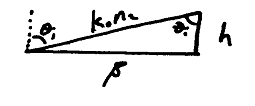 θᵢ k₀n₂ θᵢ h
β